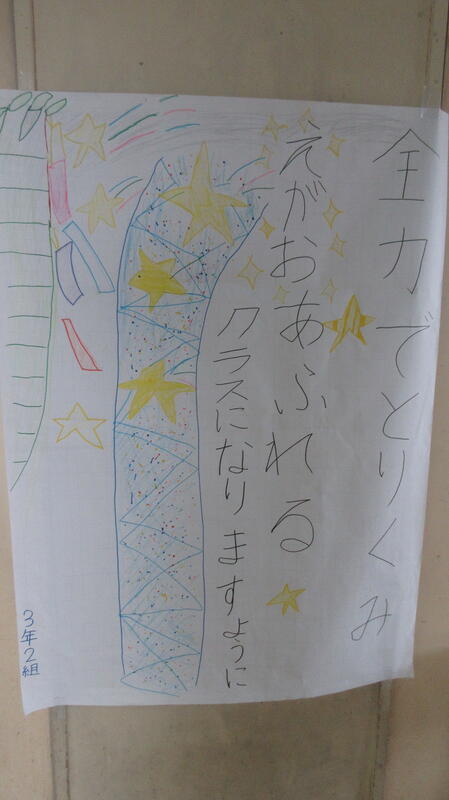 全力でとりくみ
えがおあふれる
クラスになりますように
3年2組